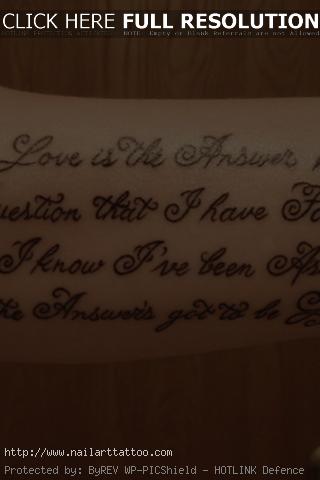 CLICK HERE FULL RESOLUTION
HOTLINK PROTECTION ACTIVATED! NOTE: Empty or Blank Referrals are not Allowed
Love is the Answer
uestion that I have
I know I've been
the Answer's got to be
http://www.nailarttattoo.com
Protected by: ByREV WP-PICShield - HOTLINK Defence